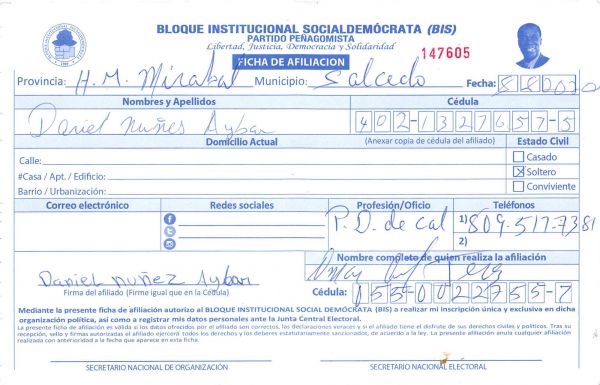 BLOQUE INSTITUCIONAL SOCIALDEMÓCRATA (BIS)
PARTIDO PEÑAGOMISTA
Libertad, Justicia, Democracia y Solidaridad
FICHA DE AFILIACION
147605
Provincia: H.M. Mirabal Municipio: Salcedo Fecha: 8 8 2020
Nombres y Apellidos Cédula
Daniel Nuñes Aybar 402-1327657-5
Domicilio Actual (Anexar copia de cédula del afiliado) Estado Civil
Calle: Casado
#Casa / Apt. / Edificio: Soltero
Barrio / Urbanización: Conviviente
Correo electrónico Redes sociales Profesión/Oficio Teléfonos
P.D. de cal 1) 809-517-7381
2)
Nombre completo de quien realiza la afiliación
Daniel Nuñez Aybar
Firma del afiliado (Firme igual que en la Cédula) Cédula: 055-0022755-7
Mediante la presente ficha de afiliación autorizo al BLOQUE INSTITUCIONAL SOCIAL DEMÓCRATA (BIS) a realizar mi inscripción única y exclusiva en dicha
organización política, así como a registrar mis datos personales ante la Junta Central Electoral.
La presente ficha de afiliación es válida si los datos ofrecidos por el afiliado son correctos, las declaraciones veraces y si el afiliado tiene el disfrute de sus derechos civiles y políticos. Tras su
recepción, sello y firmas autorizadas el afiliado ejercerá todos los derechos y los deberes estatutariamente sancionados, de acuerdo a la ley. La presente afiliación anula cualquier afiliación
realizada con anterioridad a la fecha que aparece en esta ficha.
SECRETARIO NACIONAL DE ORGANIZACIÓN SECRETARIO NACIONAL ELECTORAL